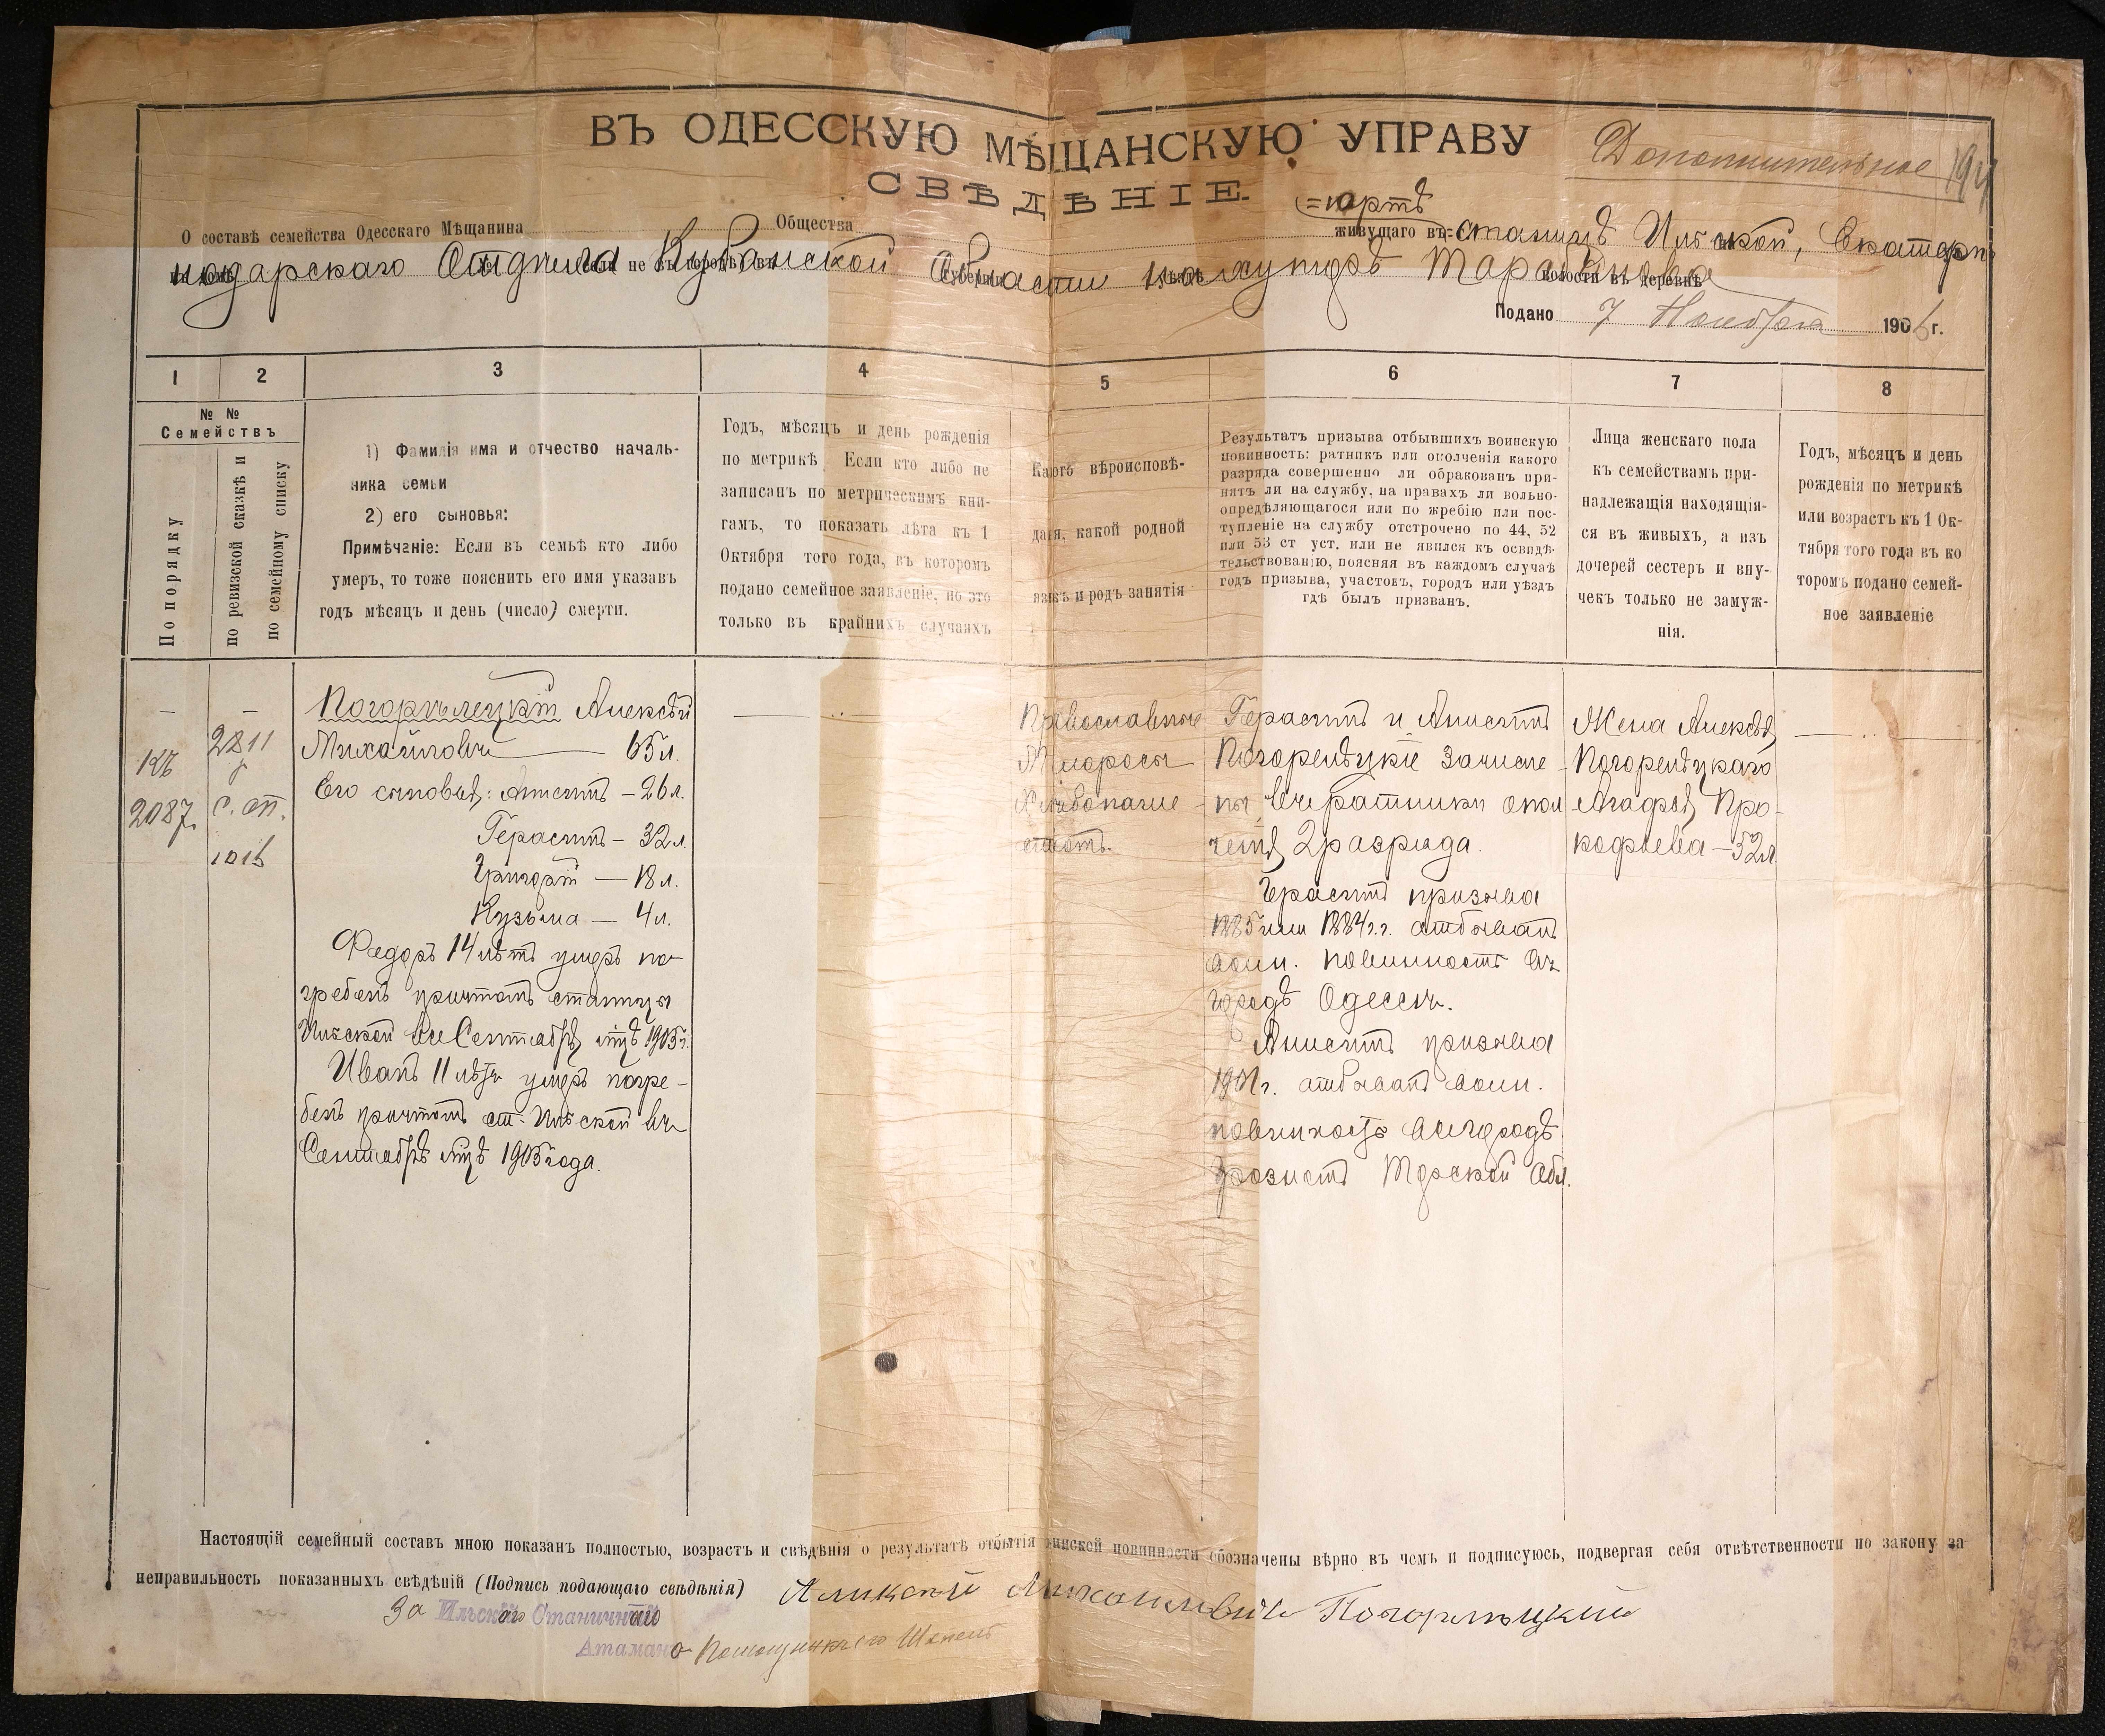 ВЪ ОДЕССКУЮ МѢЩАНСКУЮ УПРАВУ
Дополнительное
СВѢДѢНІЕ.
=юртѣ
О составѣ семейства Одесскаго Мѣщанина Общества живущаго въ станицѣ Ильской, Екатери
нодарскаго Отдѣла Кубанской Области на хуторѣ Тараканова
Подано 7 Ноября 1906 г.
1 2 3 4 5 6 7 8
№ №
Семействъ
По порядку
по ревизской сказкѣ и
по семейному списку
1) Фамилія имя и отчество началь-
ника семьи
2) его сыновья:
Примѣчаніе: Если въ семьѣ кто либо
умеръ, то тоже пояснить его имя указавъ
годъ мѣсяцъ и день (число) смерти.
Годъ, мѣсяцъ и день рожденія
по метрикѣ Если кто либо не
записанъ по метрическимъ кни-
гамъ, то показать лѣта къ 1
Октября того года, въ которомъ
подано семейное заявленіе, но это
только въ крайнихъ случаяхъ
Какого вѣроисповѣ-
данія, какой родной
языкъ и родъ занятія
Результатъ призыва отбывшихъ воинскую
повинность: ратникъ или ополченія какого
разряда совершенно ли обракованъ при-
нятъ ли на службу, на правахъ ли вольно-
опредѣляющагося или по жребію или пос-
тупленіе на службу отстрочено по 44, 52
или 53 ст уст. или не явился къ освидѣ-
тельствованію, поясняя въ каждомъ случаѣ
годъ призыва, участокъ, городъ или уѣздъ
гдѣ былъ призванъ.
Лица женскаго пола
къ семействамъ при-
надлежащія находящія-
ся въ живыхъ, а изъ
дочерей сестеръ и вну-
чекъ только не замуж-
нія.
Годъ, мѣсяцъ и день
рожденія по метрикѣ
или возрастъ къ 1 Ок-
тября того года въ ко
торомъ подано семей-
ное заявленіе
2087.
2811
с. сп.
Погорѣлецкій Алексѣй
Михайловичъ — 65 л.
Его сыновья: Анисимъ – 26 л.
Герасимъ – 32 л.
Григорій — 18 л.
Кузьма — 4 л.
Федоръ 14 лѣтъ умеръ по-
гребенъ причтомъ станицы
Ильской въ Сентябрѣ м-цѣ 1905 г.
Иванъ 11 лѣтъ умеръ погре-
бенъ причтомъ ст. Ильской въ
Сентябрѣ м-цѣ 1905 года.
Православные
Малоросы
Хлѣбопаше-
ствомъ.
Герасимъ и Анисимъ
Погорелѣцкіе зачисле-
ны въ ратники опол
ченія 2 разряда.
Герасимъ призыва
отбывалъ
воин. повинность въ
городѣ Одессы.
Анисимъ призыва
1901 г. отбывалъ воин.
повинность въ городѣ
Грозномъ Терской Обл.
Жена Алексѣя
Погорелѣцкаго
Агафья Про-
кофьева – 52 л.
Настоящій семейный составъ мною показанъ полностью, возрастъ и свѣдѣнія о результатѣ отбытія воинской повинности обозначены вѣрно въ чемъ и подписуюсь, подвергая себя отвѣтственности по закону за
неправильность показанныхъ свѣдѣній (Подпись подающаго свѣдѣнія) Аликсѣй Михаиловичъ Погорлѣцкий
За Ильскаго Станичнаго
Атамана Помощникъ его